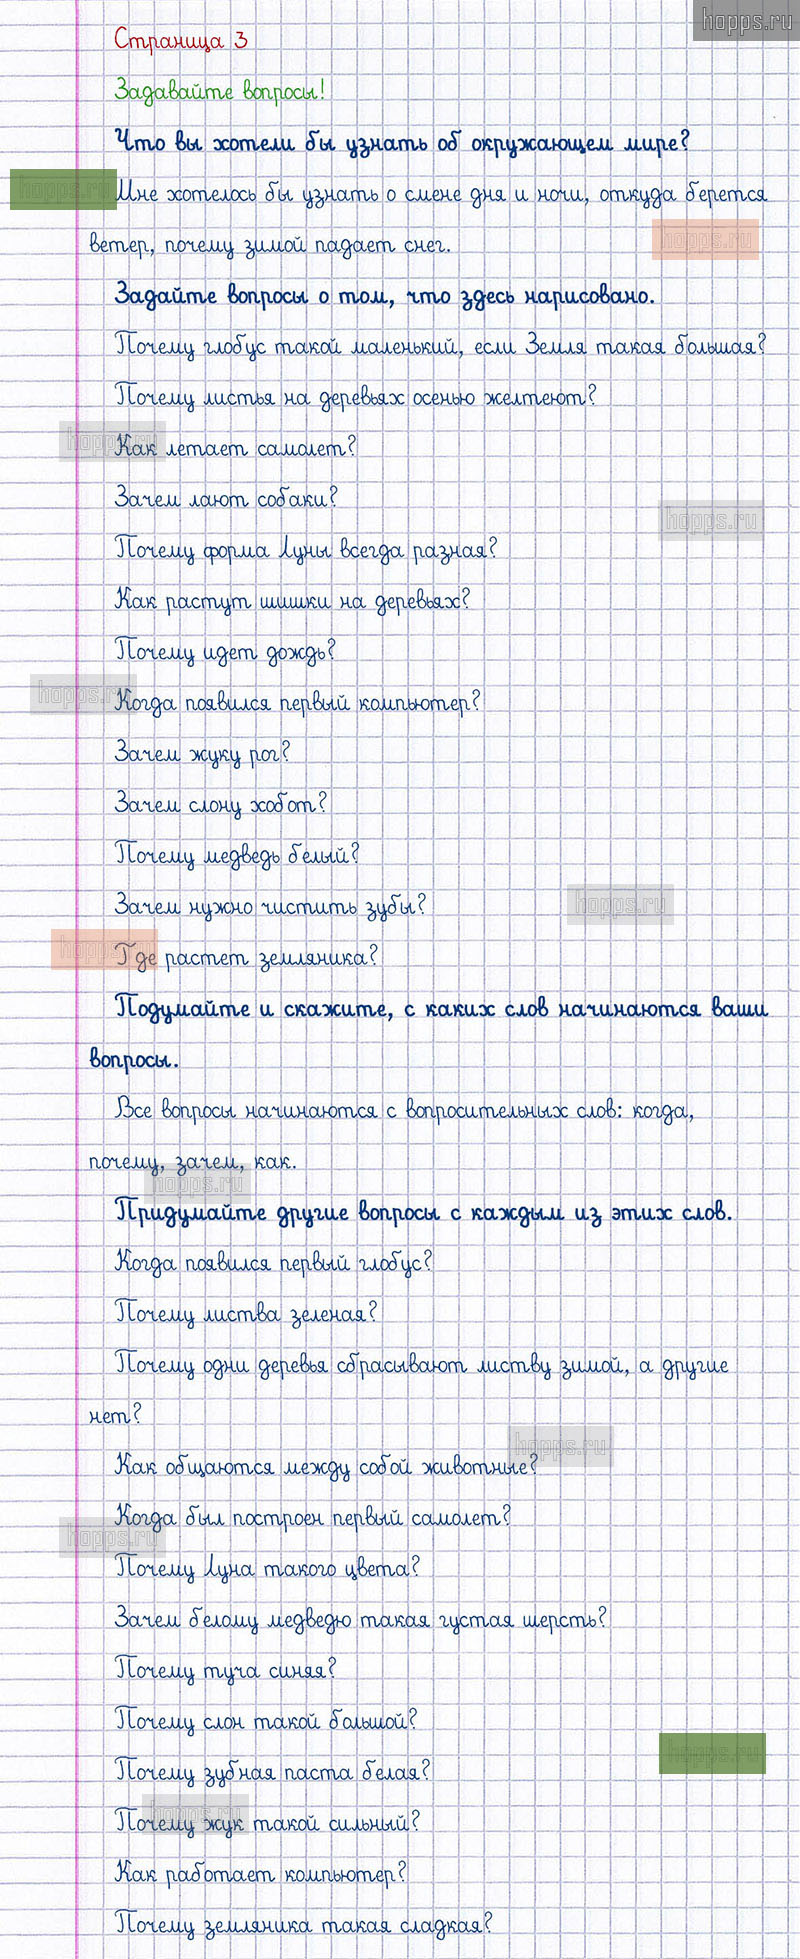 hopps.ru
Страница 3
Задавайте вопросы!
Что вы хотели бы узнать об окружающем мире?
hopps.ru
Мне хотелось бы узнать о смене дня и ночи, откуда берется
hopps.ru
ветер, почему зимой падает снег.
Задайте вопросы о том, что здесь нарисовано.
Почему глобус такой маленький, если Земля такая большая?
Почему листья на деревьях осенью желтеют?
hopps.ru
Как летает самолет?
Зачем лают собаки?
hopps.ru
Почему форма Луны всегда разная?
Как растут шишки на деревьях?
Почему идет дождь?
hopps.ru
Когда появился первый компьютер?
Зачем жуку рог?
Зачем слону хобот?
Почему медведь белый?
Зачем нужно чистить зубы?
hopps.ru
hopps.ru
Где растет земляника?
Подумайте и скажите, с каких слов начинаются ваши
вопросы.
Все вопросы начинаются с вопросительных слов: когда,
почему, зачем, как.
hopps.ru
Придумайте другие вопросы с каждым из этих слов.
Когда появился первый глобус?
Почему листва зеленая?
Почему одни деревья сбрасывают листву зимой, а другие
нет?
hopps.ru
Как общаются между собой животные?
Когда был построен первый самолет?
hopps.ru
Почему Луна такого цвета?
Зачем белому медведю такая густая шерсть?
Почему туча синяя?
Почему слон такой большой?
hopps.ru
Почему зубная паста белая?
hopps.ru
Почему жук такой сильный?
Как работает компьютер?
Почему земляника такая сладкая?